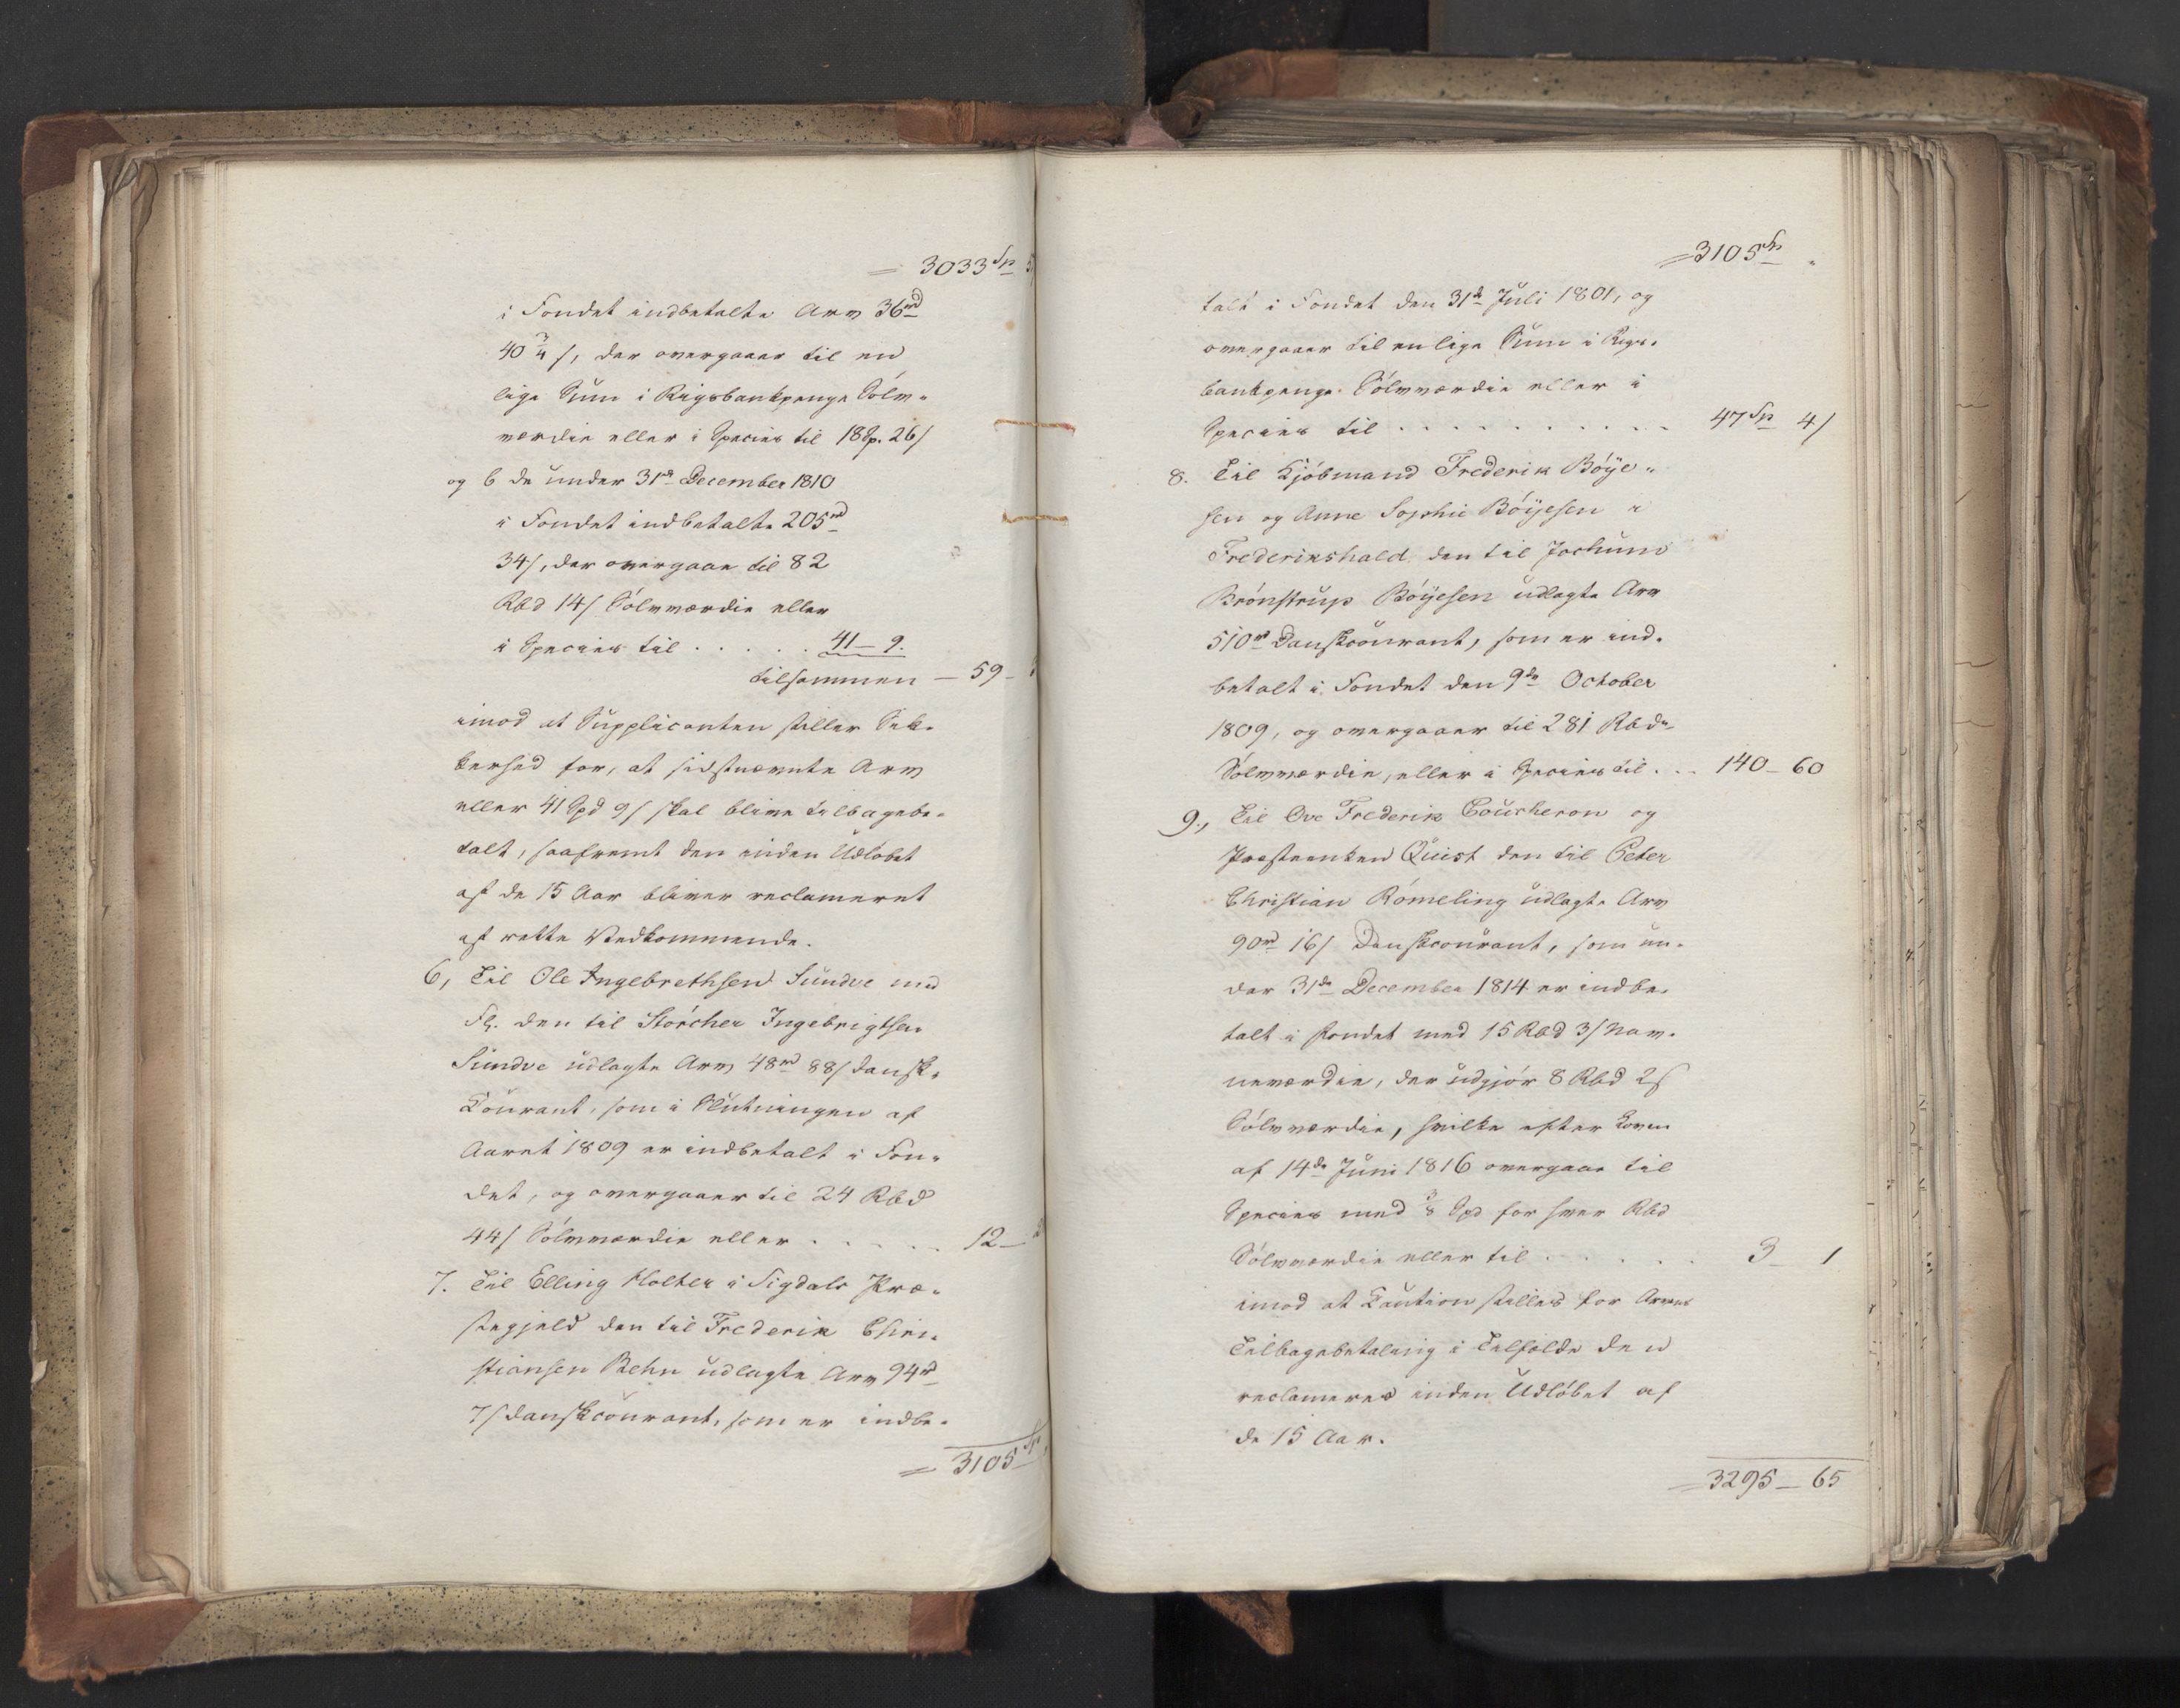 = 3033 Sp 5
i Fondet indbetalte Arv 36 rd
40 3/4 s, der overgaaer til en
lige Sum i Rigsbankpenge Sólv-
værdie eller i Species til 18 Sp. 26 s
og b de under 31te December 1810
i Fondet indbetalte 205 rd
34 s, der overgaae til 82
Rbd 14 s Sólvværdie eller
i Species til . . . . . 41 – 9.
tilsammen — 59 –
imod at Supplicanten stiller Sik-
kerhed for, at sidstnævnte Arv
eller 41 Spd 9 s skal blive tilbagebe-
talt, saafremt den inden Udløbet
af de 15 Aar bliver reclameret
af rette Vedkommende.
6, Til Ole Ingebrethsen Sundve med
Fl. den til Stórcher Ingebrigtsen
Sundve udlagte Arv 48 rd 88 s dansk-
Courant, som i Slutningen af
Aaret 1809 er indbetalt i Fon-
det, og overgaaer til 24 Rbd
44 s Sólvværdie eller . . . . . 12 –
7. Til Elling Holter i Sigdals Præ-
stegjeld den til Frederik Chri-
stiansen Behn udlagte Arv 94 rd
7 s danskcourant, som er indbe-
= 3105 Sp
= 3105 Sp "
talt i Fondet den 31te Juli 1801, og
overgaaer til en lige Sum i Rigs-
bankpenge Sólvværdie eller i
Species til . . . . . . . . . . 47 Sp 4 s
8. Til Kjóbmand Frederik Bóye-
sen og Anne Sophie Bóyesen i
Frederikshald den til Jochum
Brónstrup Bóyesen udlagte Arv
510 rd Danskcourant, som er ind-
betalt i Fondet den 9de October
1809, og overgaaer til 281 Rbd
Sólvværdie, eller i Species til . . . 140 – 60
9., Til Ove Frederik Coucheron og
Præsteenken Quist den til Peter
Christian Rómeling udlagte Arv
90 rd 16 s Danskcourant, som un-
der 31te December 1814 er indbe-
talt i Fondet med 15 Rbd 3 s Nav-
neværdie, der udgjór 8 Rbd 2 s
Sólvværdie, hvilke efter Loven
af 14de Juni 1816 overgaae til
Species med 3/8 Spd for hver Rbd
Sólvværdie eller til . . . . . 3 – 1
imod at Caution stilles for Arvens
Tilbagebetaling i Tilfælde den
reclameres inden Udlóbet af
de 15 Aar.
= 3295 – 65